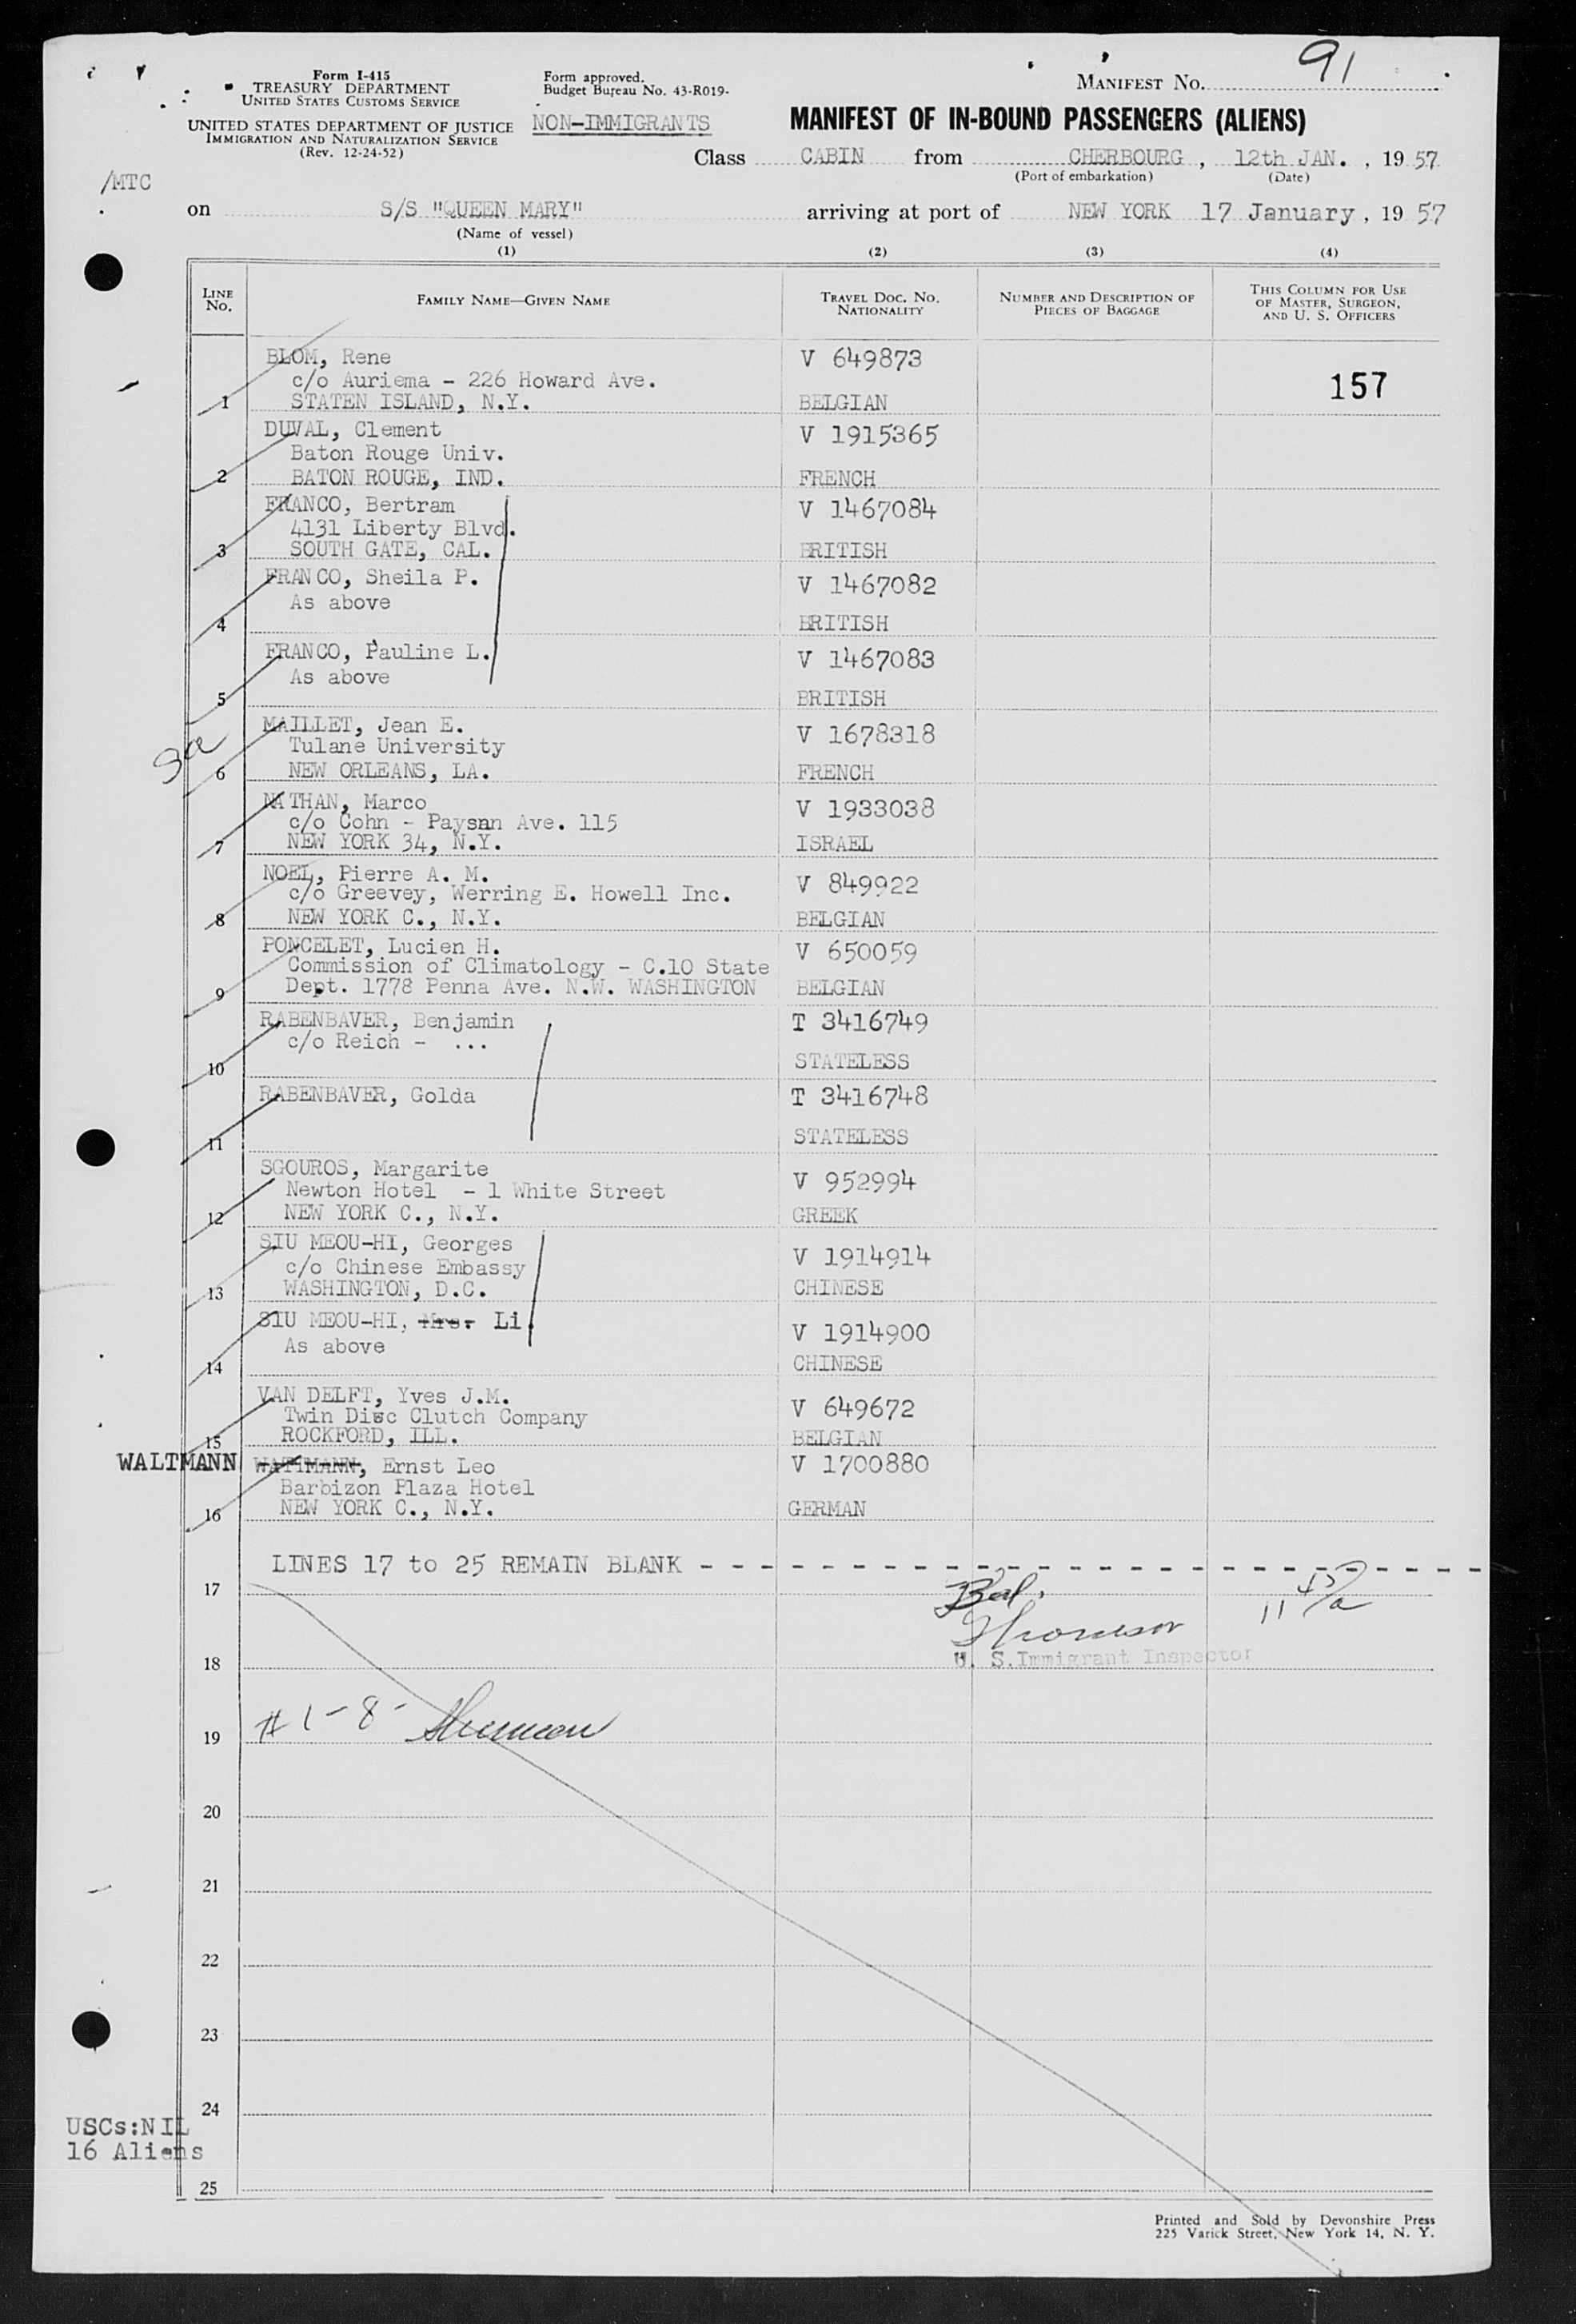 91
Form I-415
TREASURY DEPARTMENT
UNITED STATES CUSTOMS SERVICE
UNITED STATES DEPARTMENT OF JUSTICE
IMMIGRATION AND NATURALIZATION SERVICE
(Rev. 12-24-52)
Form approved.
Budget Bureau No. 43-R019-
NON-IMMIGRANTS
MANIFEST NO.
MANIFEST OF IN-BOUND PASSENGERS (ALIENS)
Class CABIN from CHERBOURG, 12th JAN., 1957
(Port of embarkation) (Date)
/MTC
on S/S "QUEEN MARY" arriving at port of NEW YORK 17 January, 1957
(Name of vessel)
(1) (2) (3) (4)
LINE NO. FAMILY NAME—GIVEN NAME TRAVEL DOC. NO. NATIONALITY NUMBER AND DESCRIPTION OF PIECES OF BAGGAGE THIS COLUMN FOR USE OF MASTER, SURGEON, AND U. S. OFFICERS
BLOM, Rene V 649873
c/o Auriema - 226 Howard Ave. 157
1 STATEN ISLAND, N.Y. BELGIAN
DUVAL, Clement V 1915365
Baton Rouge Univ.
2 BATON ROUGE, IND. FRENCH
FRANCO, Bertram V 1467084
4131 Liberty Blvd.
3 SOUTH GATE, CAL. BRITISH
FRANCO, Sheila P. V 1467082
As above
4 BRITISH
FRANCO, Pauline L. V 1467083
As above
5 BRITISH
MAILLET, Jean E. V 1678318
Tulane University
6 NEW ORLEANS, LA. FRENCH
NATHAN, Marco V 1933038
c/o Cohn - Paysan Ave. 115
7 NEW YORK 34, N.Y. ISRAEL
NOEL, Pierre A. M. V 849922
c/o Greevey, Werring E. Howell Inc.
8 NEW YORK C., N.Y. BELGIAN
PONCELET, Lucien H. V 650059
Commission of Climatology - C.10 State
9 Dept. 1778 Penna Ave. N.W. WASHINGTON BELGIAN
RABENBAVER, Benjamin T 3416749
c/o Reich - ...
10 STATELESS
RABENBAVER, Golda T 3416748
11 STATELESS
SGOUROS, Margarite V 952994
Newton Hotel - 1 White Street
12 NEW YORK C., N.Y. GREEK
SIU MEOU-HI, Georges V 1914914
c/o Chinese Embassy
13 WASHINGTON, D.C. CHINESE
SIU MEOU-HI, Mrs. Li V 1914900
As above
14 CHINESE
VAN DELFT, Yves J.M. V 649672
Twin Disc Clutch Company
15 ROCKFORD, ILL. BELGIAN
WALTMANN , Ernst Leo V 1700880
Barbizon Plaza Hotel
16 NEW YORK C., N.Y. GERMAN
LINES 17 to 25 REMAIN BLANK - - - - - - - - - - - - - - - - - - - - - - -
17
18 U. S. Immigrant Inspector
19 # 1-8-
20
21
22
23
24
USCs:NIL
16 Aliens
25
Printed and Sold by Devonshire Press
225 Varick Street, New York 14, N. Y.